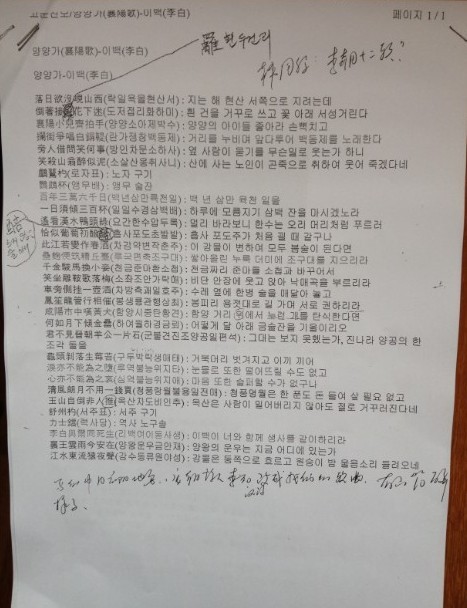 양양가(襄陽歌)-이백(李白)
페이지 1/1
양양가(襄陽歌)-이백(李白)
양양가-이백(李白)
落日欲沒峴山西(락일욕몰현산서): 지는 해 현산 서쪽으로 지려는데
倒著接花下迷(도저접리화하미): 흰 건을 거꾸로 쓰고 꽃 아래 서성거린다
襄陽小兒齊拍手(양양소아제박수): 양양의 아이들 줄아라 손뼉치고
攔街爭唱白銅鞮(란가쟁창백동제): 거리를 누비며 앞다투어 백동제를 노래한다
旁人借問笑何事(방인차문소하사): 옆 사람이 물기를 무슨일로 웃는가 하니
笑殺山翁醉似泥(소살산옹취사니): 산에 사는 노인이 곤죽으로 취하여 웃어 죽겠다네
鸕鶿杓(로자표): 노자 구기
鸚鵡杯(앵무배): 앵무 술잔
百年三萬六千日(백년삼만륙천일): 백 년 삼만 육천 일을
一日須傾三百杯(일일수경삼백배): 하루에 모름지기 삼백 잔을 마시겠노라
遙看漢水鴨頭綠(요간한수압두록): 멀리 바라보니 한수는 오리 머리처럼 푸르러
恰似葡萄初醱(흡사포도초발배): 흡사 포도주가 처음 괼 때 같구나
此江若變作春酒(차강약변작춘주): 이 강물이 변하여 모두 봄술이 된다면
壘麴便築糟丘臺(루국변축조구대): 쌓아올린 누룩 더미에 조구대를 지으리라
千金駿馬換小妾(천금준마환소첩): 천금짜리 준마를 소첩과 바꾸어서
笑坐雕鞍歌落梅(소좌조안가락매): 비단 안장에 웃고 앉아 낙매곡을 부르리라
車旁側挂一壺酒(차방측괘일호주): 수레 옆에 한병 술을 매달아 놓고
鳳笙龍管行相催(봉생룡관행상최): 봉피리 용젓대로 길 가며 서로 권하리라
咸陽市中嘆黃犬(함양시중탄황견): 함양 거리에서 누런 개를 탄식한다면
何如月下傾金罍(하여월하경금뢰): 어떻게 달 아래 금술잔을 기울이리오
君不見晉朝羊公一片石(군불견진조양공일편석): 그대는 보지 못했는가, 진나라 양공의 한
조각 돌을
龜頭剝落生莓苔(구두박락생매태): 거북머리 벗겨지고 이끼 끼어
淚亦不能為之墮(루역불능위지타): 눈물로 또한 떨어뜨릴 수도 없고
心亦不能為之哀(심역불능위지애): 마음 또한 슬퍼할 수가 없구나
清風朗月不用一錢買(청풍랑월불용일전매): 청풍명월은 한 푼도 돈 들여 살 필요 없고
玉山自倒非人推(옥산자도비인추): 옥산은 사람이 밀어버리지 않아도 절로 거꾸러진다네
舒州杓(서주표): 서주 구기
力士鐺(력사당): 역사 노구솥
李白與爾同死生(리백여이동사생): 이백이 너와 함께 생사를 같이하리라
襄王雲雨今安在(양왕운우금안재): 양왕의 운우는 지금 어디에 있는가
江水東流猿夜聲(강수동류원야성): 강물은 동쪽으로 흐르고 원숭이 밤 울음소리 들려오네